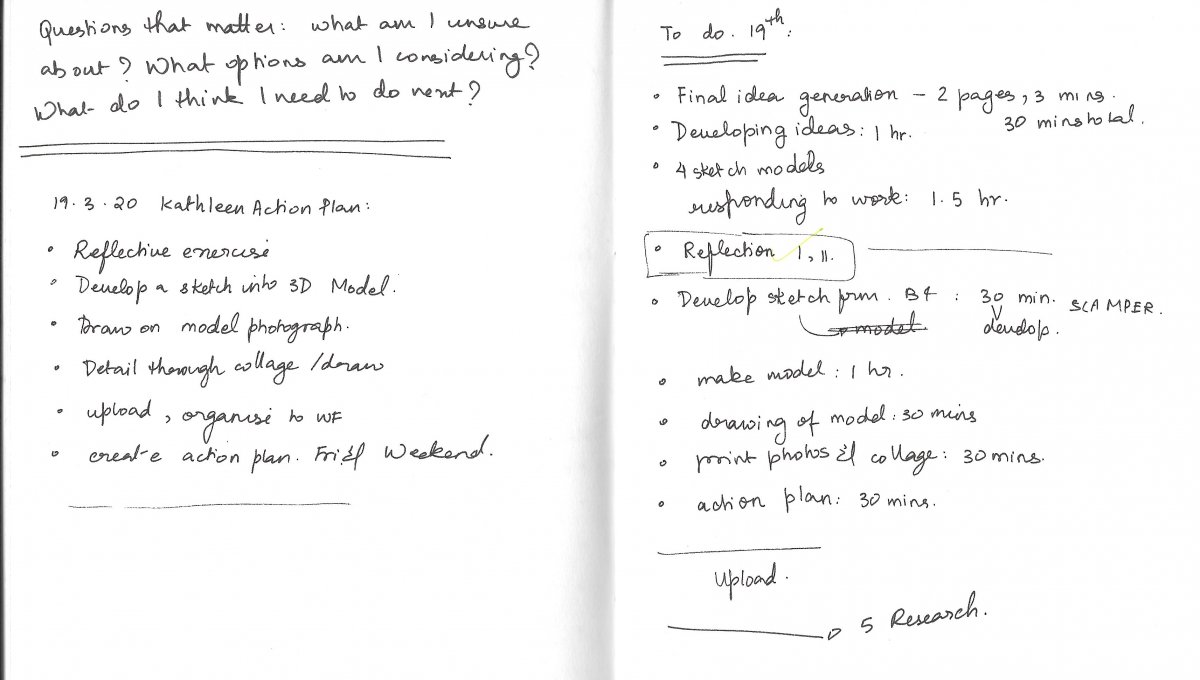 Questions that matter: what am I unsure
about? What options am I considering?
What do I think I need to do next?
19.3.20 Kathleen Action Plan:
• Reflective exercise
• Develop a sketch into 3D Model.
• Draw on model photograph.
• Detail through collage/draw
• upload, organise to WF
• create action plan. Fri & Weekend.
To do. 19th:
• Final idea generation – 2 pages, 3 mins.
30 mins total.
• Developing ideas: 1 hr.
• 4 sketch models
responding to work: 1.5 hr.
• Reflection I, II.
• Develop sketch from. B4 : 30 min. SCAMPER.
model. develop.
• make model: 1 hr.
• drawing of model: 30 mins
• print photos & collage: 30 mins.
• action plan: 30 mins.
Upload.
5 Research.